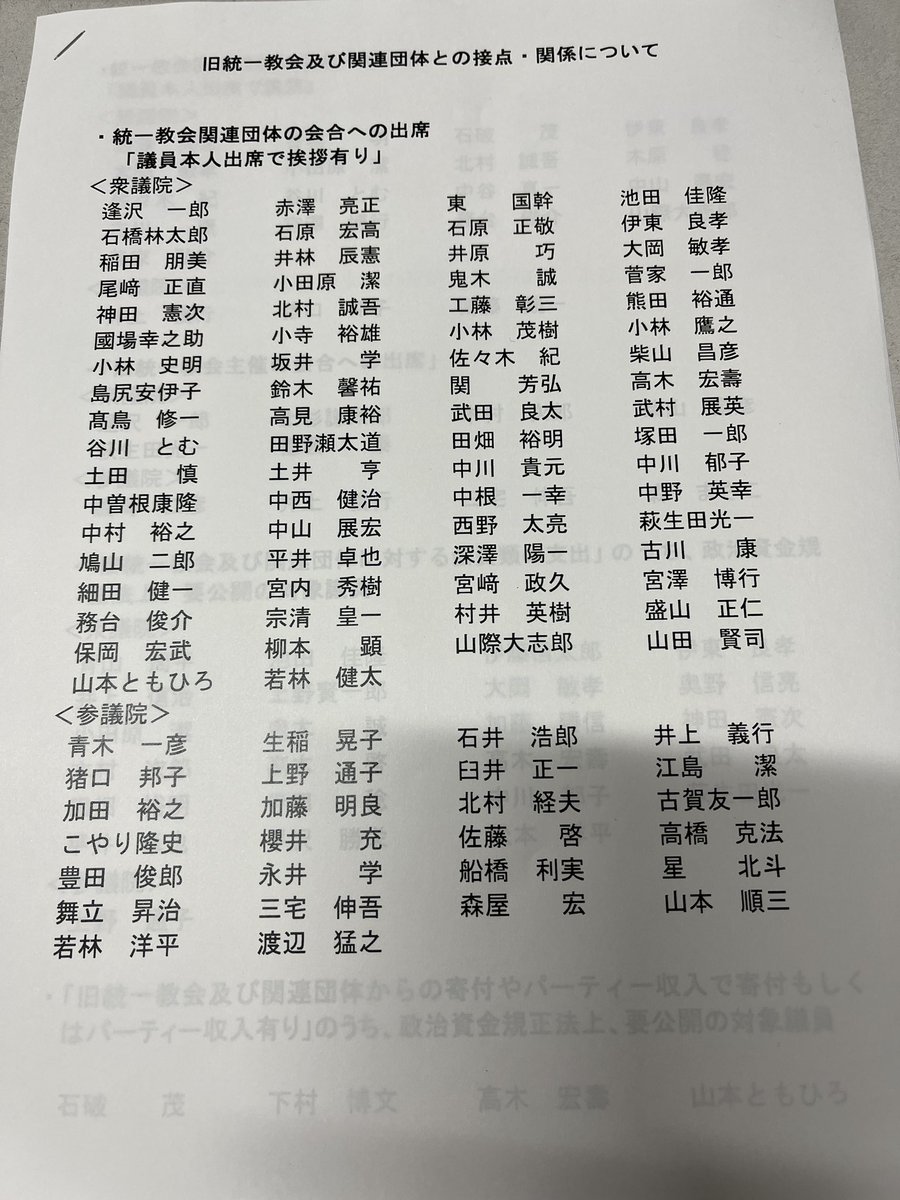 旧統一教会及び関連団体との接点・関係について
・統一教会関連団体の会合への出席
「議員本人出席で挨拶有り」
＜衆議院＞
逢沢　一郎　赤澤　亮正　東　国幹　池田　佳隆
石橋林太郎　石原　宏高　石原　正敬　伊東　良孝
稲田　朋美　井林　辰憲　井原　巧　大岡　敏孝
尾﨑　正直　小田原　潔　鬼木　誠　菅家　一郎
神田　憲次　北村　誠吾　工藤　彰三　熊田　裕通
國場幸之助　小寺　裕雄　小林　茂樹　小林　鷹之
小林　史明　坂井　学　佐々木　紀　柴山　昌彦
島尻安伊子　鈴木　馨祐　関　芳弘　高木　宏壽
髙鳥　修一　高見　康裕　武田　良太　武村　展英
谷川　とむ　田野瀬太道　田畑　裕明　塚田　一郎
土田　慎　土井　亨　中川　貴元　中川　郁子
中曽根康隆　中西　健治　中根　一幸　中野　英幸
中村　裕之　中山　展宏　西野　太亮　萩生田光一
鳩山　二郎　平井　卓也　深澤　陽一　古川　康
細田　健一　宮内　秀樹　宮﨑　政久　宮澤　博行
務台　俊介　宗清　皇一　村井　英樹　盛山　正仁
保岡　宏武　柳本　顕　山際大志郎　山田　賢司
山本ともひろ　若林　健太
＜参議院＞
青木　一彦　生稲　晃子　石井　浩郎　井上　義行
猪口　邦子　上野　通子　臼井　正一　江島　潔
加田　裕之　加藤　明良　北村　経夫　古賀友一郎
こやり隆史　櫻井　充　佐藤　啓　高橋　克法
豊田　俊郎　永井　学　船橋　利実　星　北斗
舞立　昇治　三宅　伸吾　森屋　宏　山本　順三
若林　洋平　渡辺　猛之
・「旧統一教会及び関連団体からの寄付やパーティー収入で寄付もしく
はパーティー収入有り」のうち、政治資金規正法上、要公開の対象議員
石破　茂　下村　博文　高木　宏壽　山本ともひろ